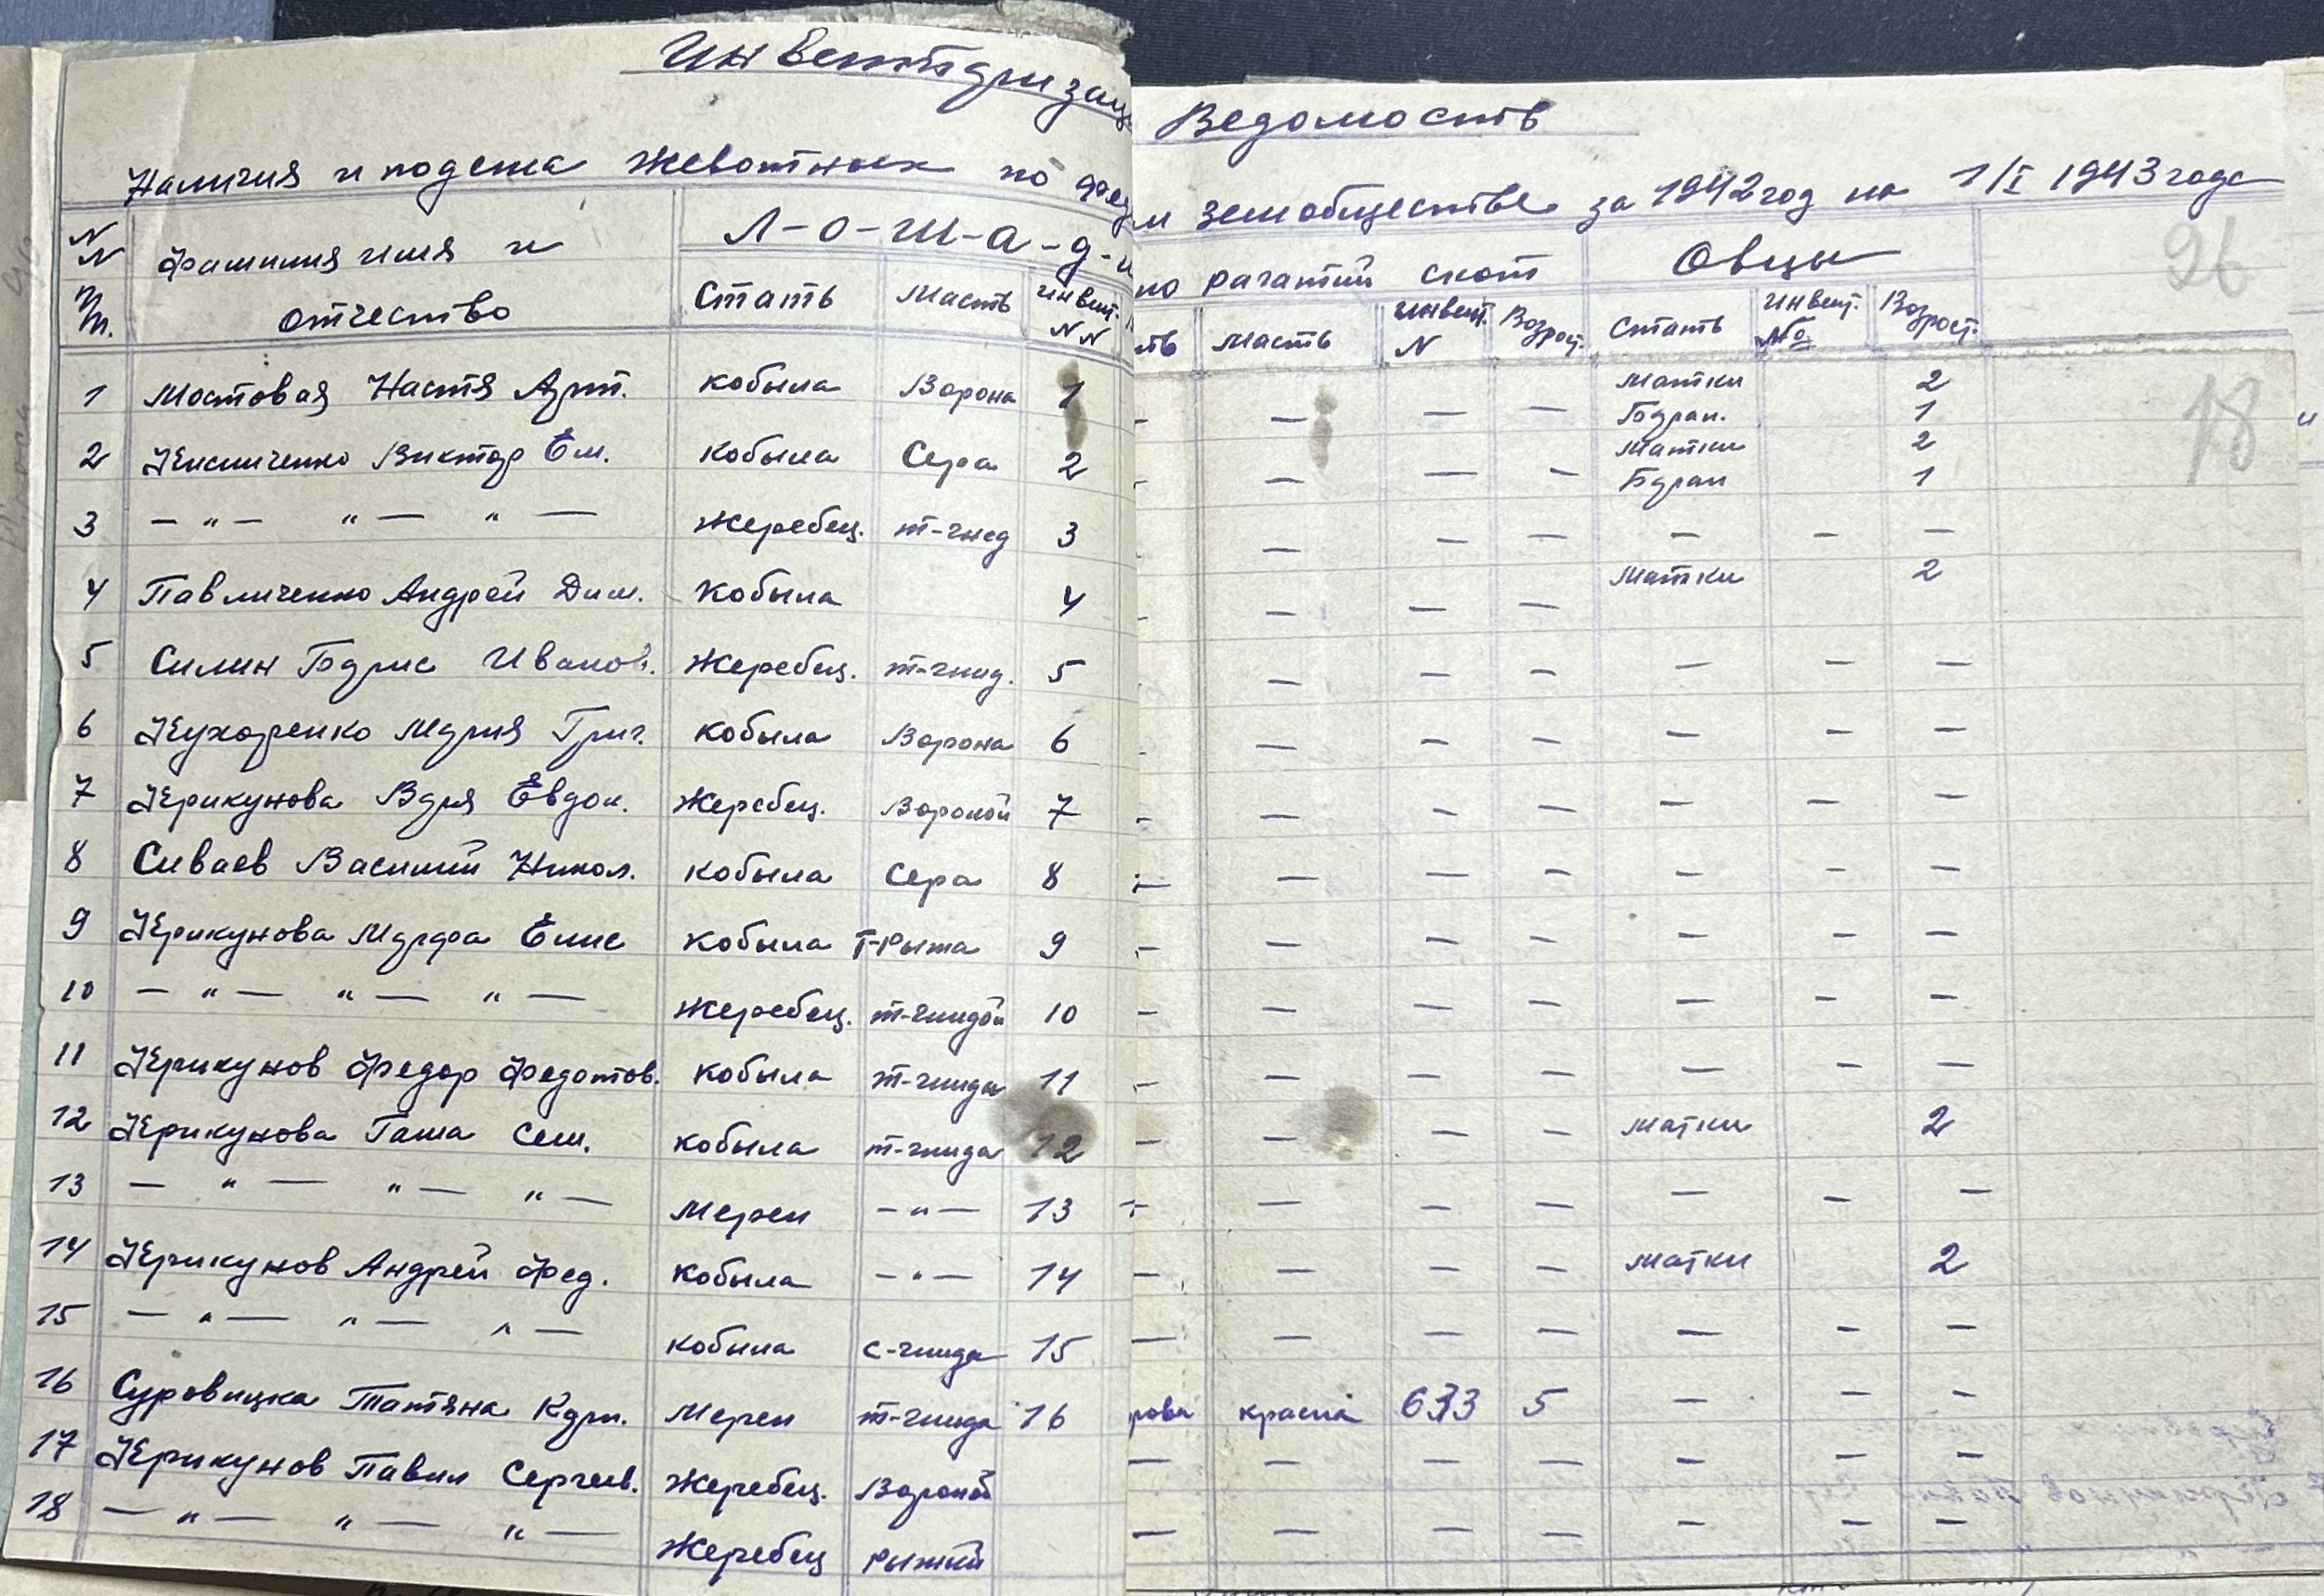 Инвентаризац Ведомость
Наличия и подсчта животных по фед м земобществе за 1942 год на 1/I 1943 года
N N п/п. Фамилия имя и отчество Л-о-ш-а-д-и но рагатий скот Овцы 96
Стать Масть Инвент. N N ть масть Инвент. N Возраст. Стать Инвент. № Возраст.
1 Мостовая Настя Арт. кобыла Ворона 1 - — — — Матки 2 18
Баран. 1
2 Кисличенко Виктор Ем. кобыла Сера 2 - — — - Матки 2
Баран 1
3 — " — " — " — Жеребец. т-гнед 3 - — — — — - —
4 Павличенко Андрей Дим. Кобыла 4 - — — — Матки 2
5 Силин Борис Иванов. Жеребец. т-гнид. 5 - — — — — — —
6 Кухаренко Мария Григ. кобыла Ворона 6 - — — — — — —
7 Крикунова Варя Евдок. Жеребец. Вороной 7 - — - — — — —
8 Сиваев Василий Никол. кобыла Сера 8 — — — — — — —
9 Крикунова Марфа Елис кобыла Т-Рыжа 9 - — — — — — —
10 — " — " — " — Жеребец. т-гнидой 10 — — — — — - —
11 Крикунов Федор Федотов. кобыла т-гнида 11 - — — — — — —
12 Крикунова Гаша Сем. кобыла т-гнида 12 — — — — матки 2
13 — " — " — " — Мерен — " — 13 - — — — — — —
14 Крикунов Андрей Фед. кобыла — " — 14 — — — — матки 2
15 — " — " — " — кобыла с-гнида 15 — — — — — — —
16 Суровицка Татяна Карп. Мерен т-гнида 16 рова красна 633 5 — — -
17 Крикунов Павил Сергеев. Жеребец. Вороной — — — — — — —
18 — " — " — " — Жеребец рыжий — — — — — — —